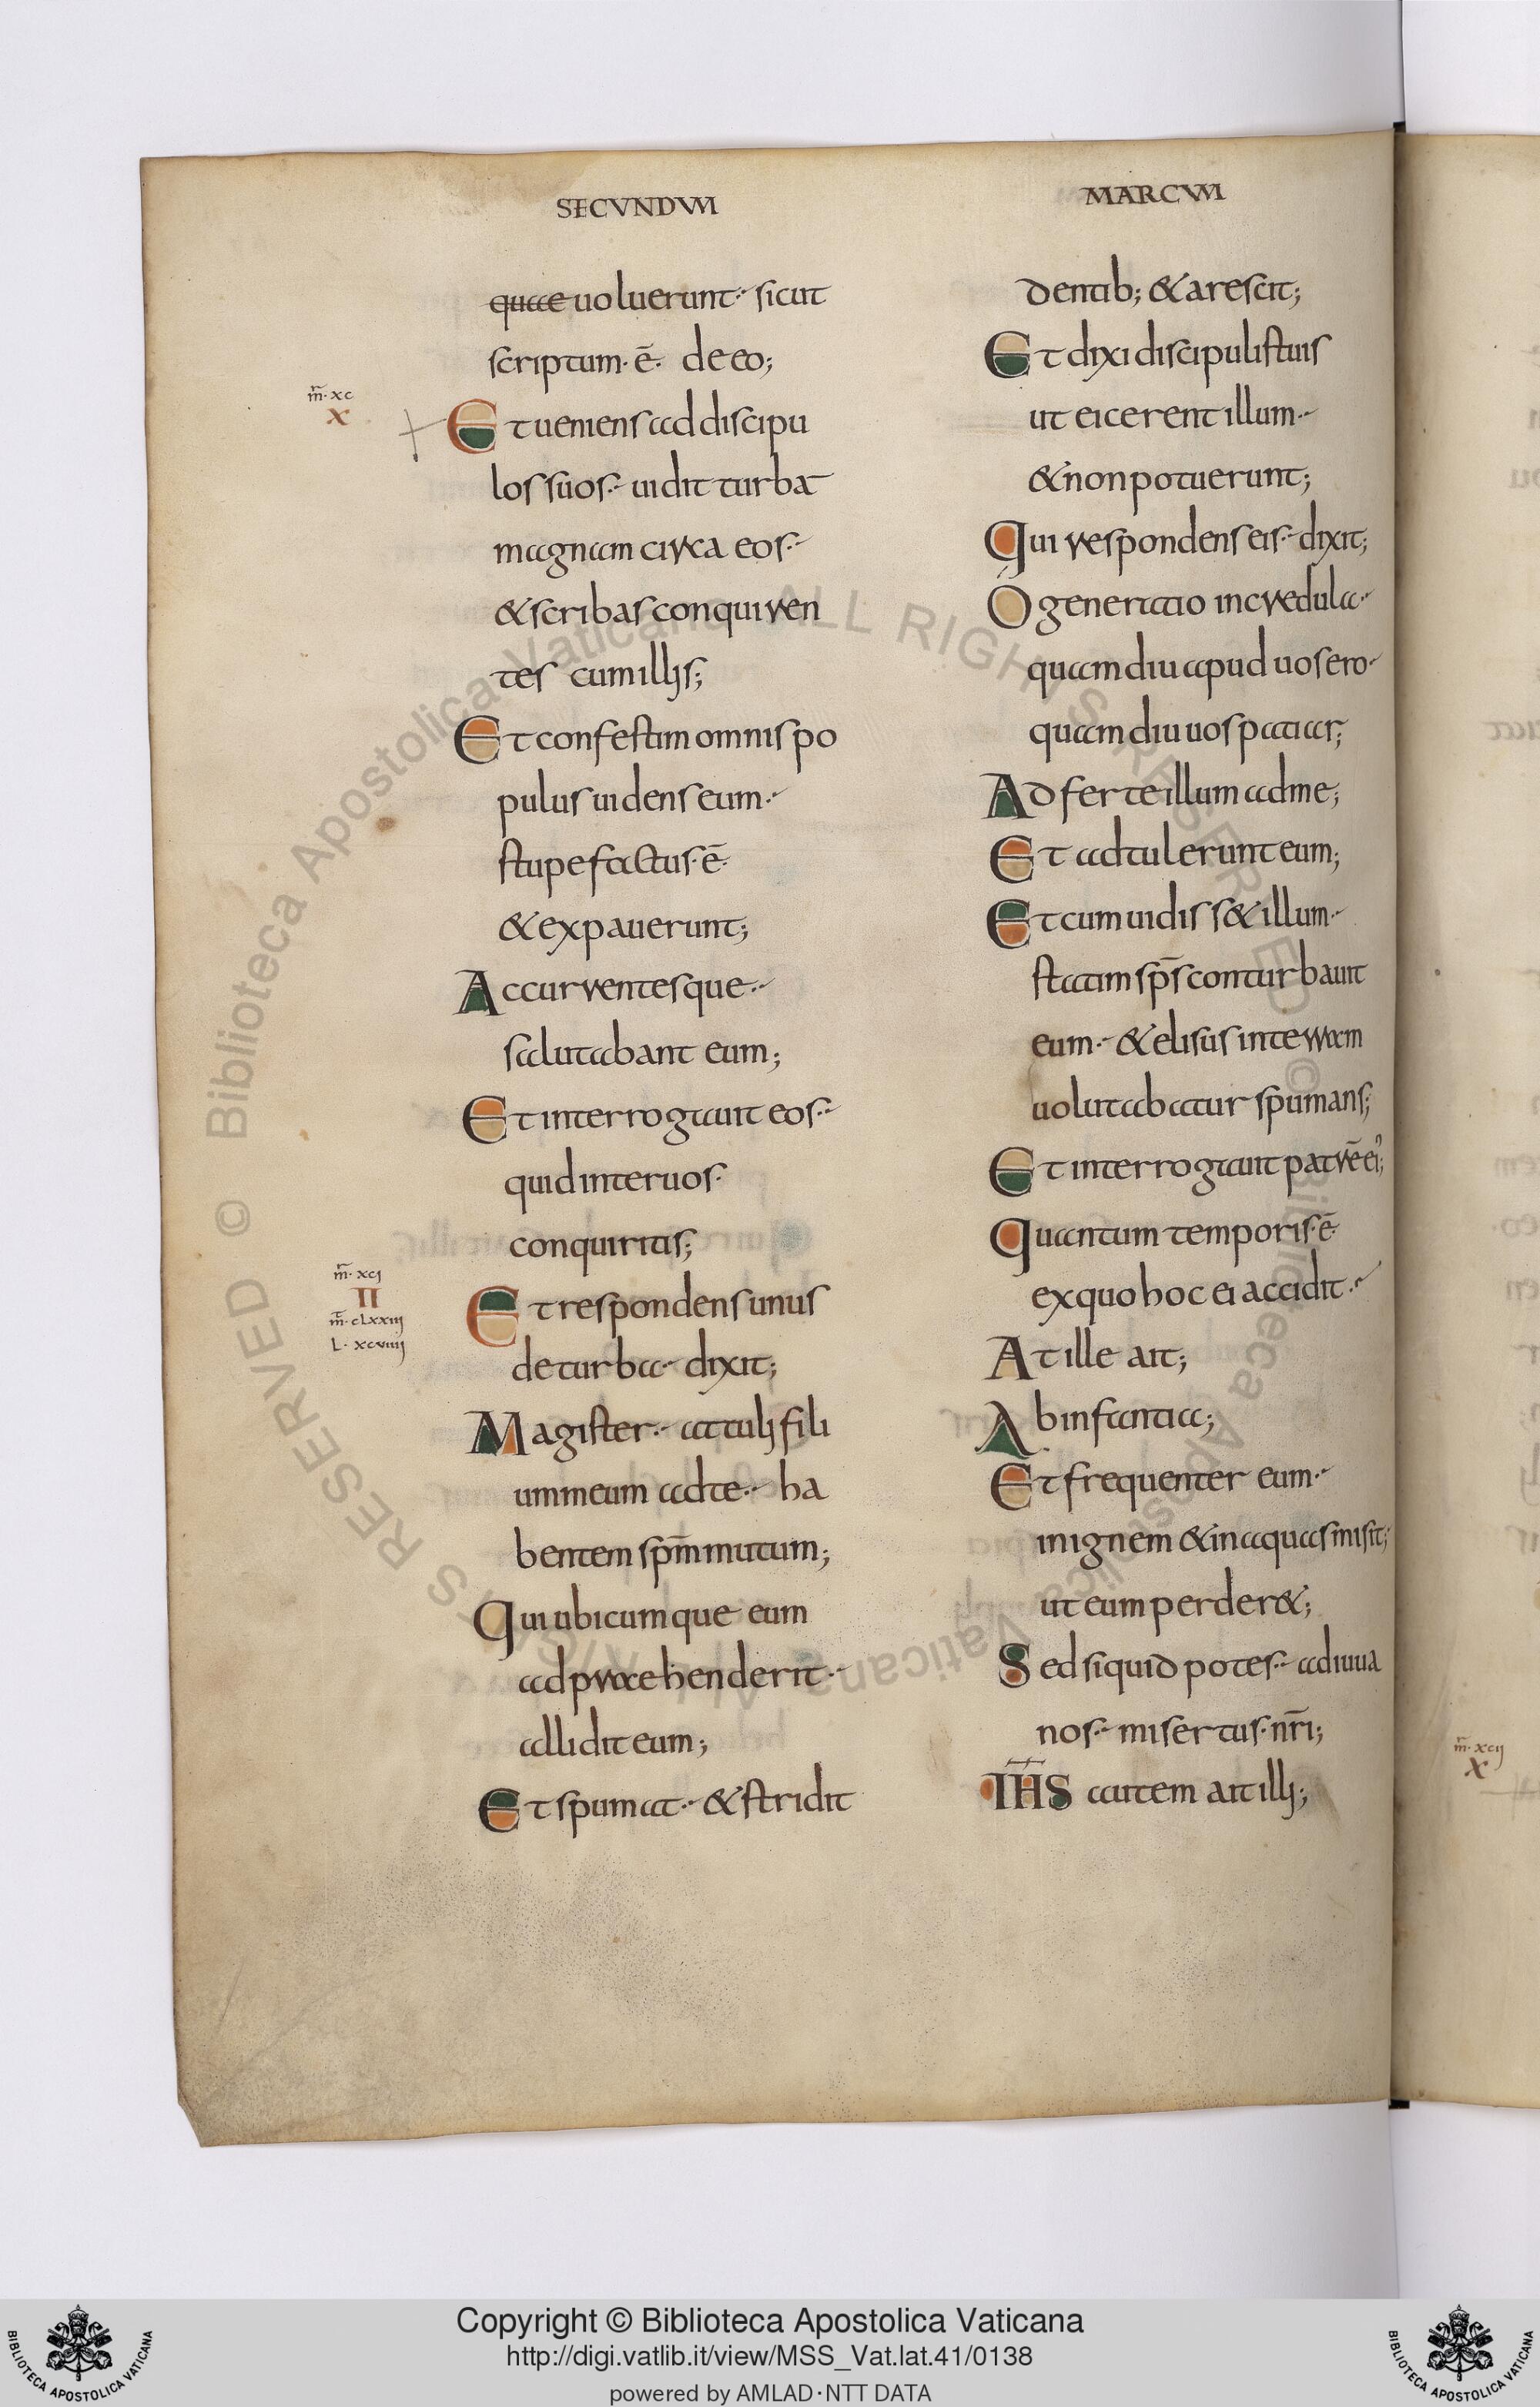 SECVNDVM
quae uoluerunt· sicut
scriptum· ē· de eo;
m̄· xc
x
Et ueniens ad discipu
los suos· uidit turbā
magnam circa eos·
& scribas conquiren
tes cum illis;
Et confestim omnis po
pulus uidens eum·
stupefactus· ē·
& expauerunt;
Accurrentesque·
salutabant eum;
Et interrogauit eos·
quid inter uos·
conquiritis;
m̄· xcj
II
m̄· clxxiiij
L· xcviiij
Et respondens unus
de turba· dixit;
Magister· attuli fili
um meum ad te· ha
bentem sp̄m mutum;
Qui ubicumque eum
adpraehenderit·
allidit eum;
Et spumat· & stridit
MARCVM
dentib; & arescit;
Et dixi discipulis tuis
ut eicerent illum·
& non potuerunt;
Qui respondens eis· dixit;
O generatio incredula·
quamdiu apud uos ero·
quamdiu uos patiar;
Adferte illum ad me;
Et adtulerunt eum;
Et cum uidiss& illum·
statim sp̄s conturbauit
eum· & elisus in terram
uolutabatur spumans;
Et interrogauit patrē ei';
Quantum temporis· ē·
ex quo hoc ei accidit·
At ille ait;
Ab infantia;
Et frequenter eum·
in ignem & in aquas misit;
ut eum perder&;
Sed si quid potes· adiuua
nos· misertus· nr̄i;
IH̄S autem ait illi;
m̄· xcij
x
Copyright © Biblioteca Apostolica Vaticana
http://digi.vatlib.it/view/MSS_Vat.lat.41/0138
powered by AMLAD·NTT DATA
BIBLIOTECA APOSTOLICA VATICANA
BIBLIOTECA APOSTOLICA VATICANA